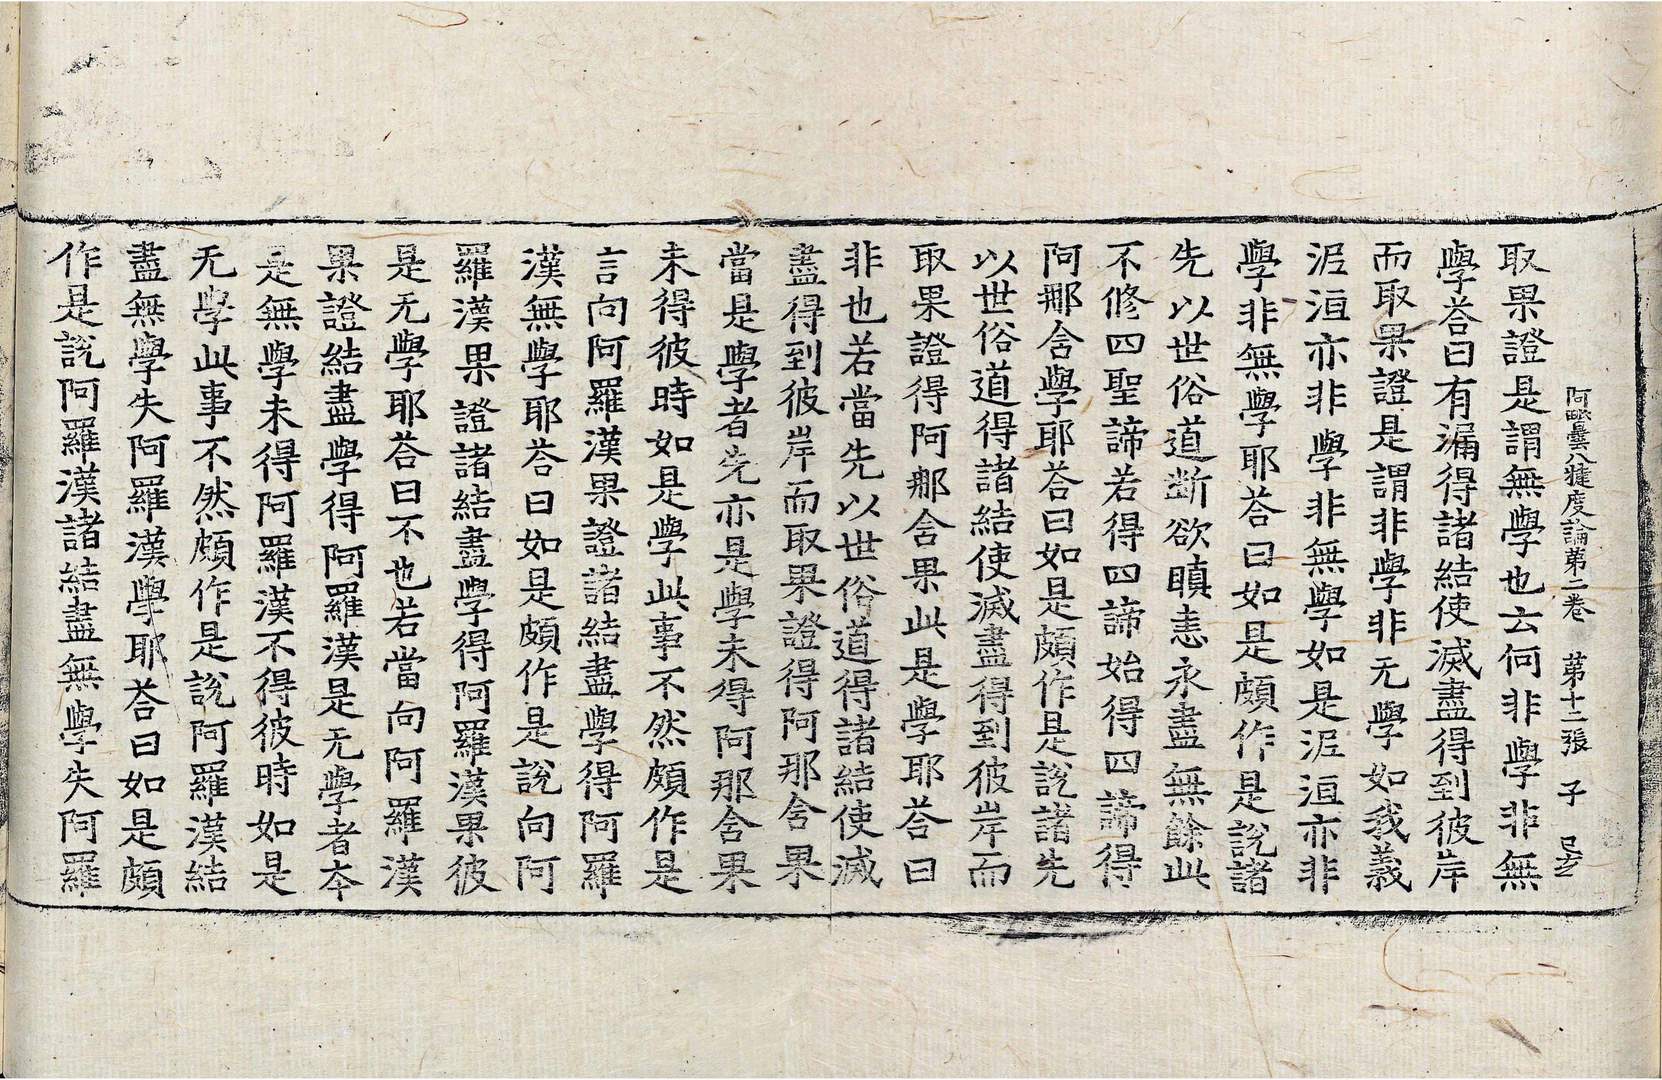 阿毗曇八犍度論第二卷　第十二張　子
取果證是謂無學也云何非學非無
學荅曰有漏得諸結使滅盡得到彼岸
而取果證是謂非學非无學如我義
泥洹亦非學非無學如是泥洹亦非
學非無學耶荅曰如是頗作是說諸
先以世俗道斷欲瞋恚永盡無餘此
不修四聖諦若得四諦始得四諦得
阿那含學耶荅曰如是頗作是說諸先
以世俗道得諸結使滅盡得到彼岸而
取果證得阿那含果此是學耶荅曰
非也若當先以世俗道得諸結使滅
盡得到彼岸而取果證得阿那含果
當是學者先亦是學未得阿那含果
未得彼時如是學此事不然頗作是
言向阿羅漢果證諸結盡學得阿羅
漢無學耶荅曰如是頗作是說向阿
羅漢果證諸結盡學得阿羅漢果彼
是无學耶荅曰不也若當向阿羅漢
果證結盡學得阿羅漢是无學者本
是無學未得阿羅漢不得彼時如是
无學此事不然頗作是說阿羅漢結
盡無學失阿羅漢學耶荅曰如是頗
作是說阿羅漢諸結盡無學失阿羅